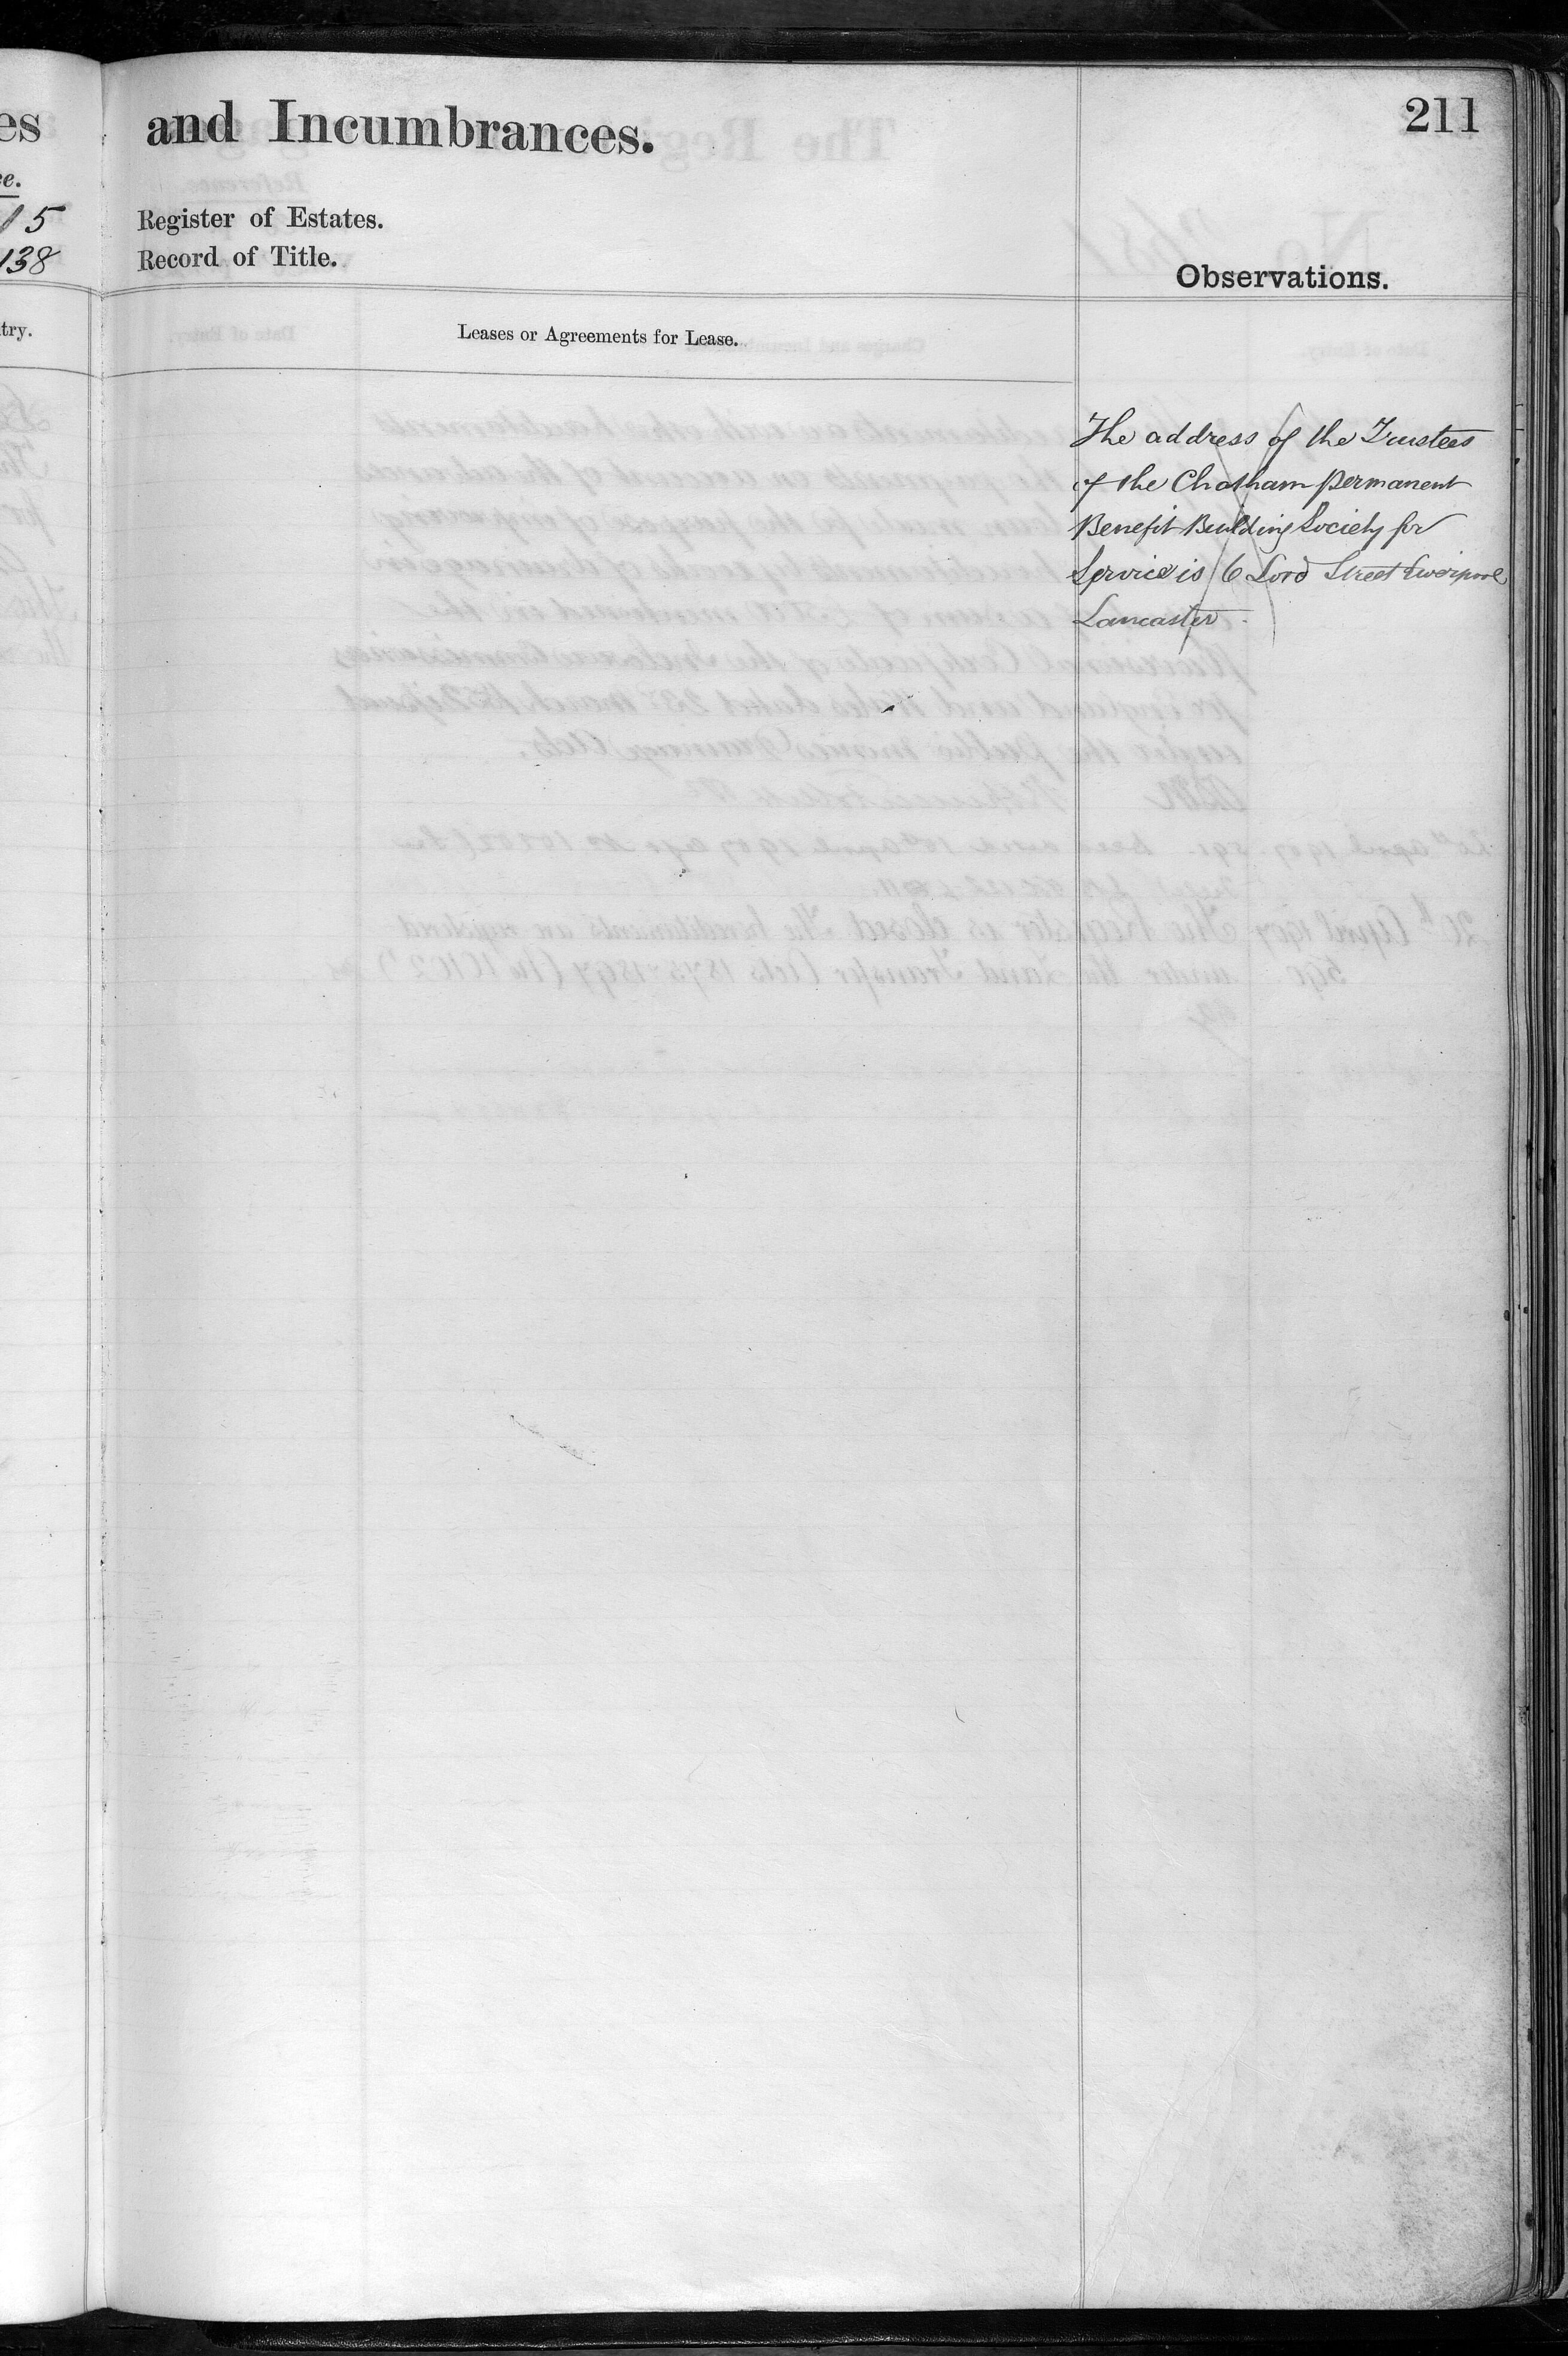 es
and Incumbrances.
211
ce.
15
Register of Estates.
138
Record of Title.
Observations.
try.
Leases or Agreements for Lease.
The address of the Trustees
of the Chatham Permanent
Benefit Building Society for
Service is 6 Lord Street Liverpool
Lancaster